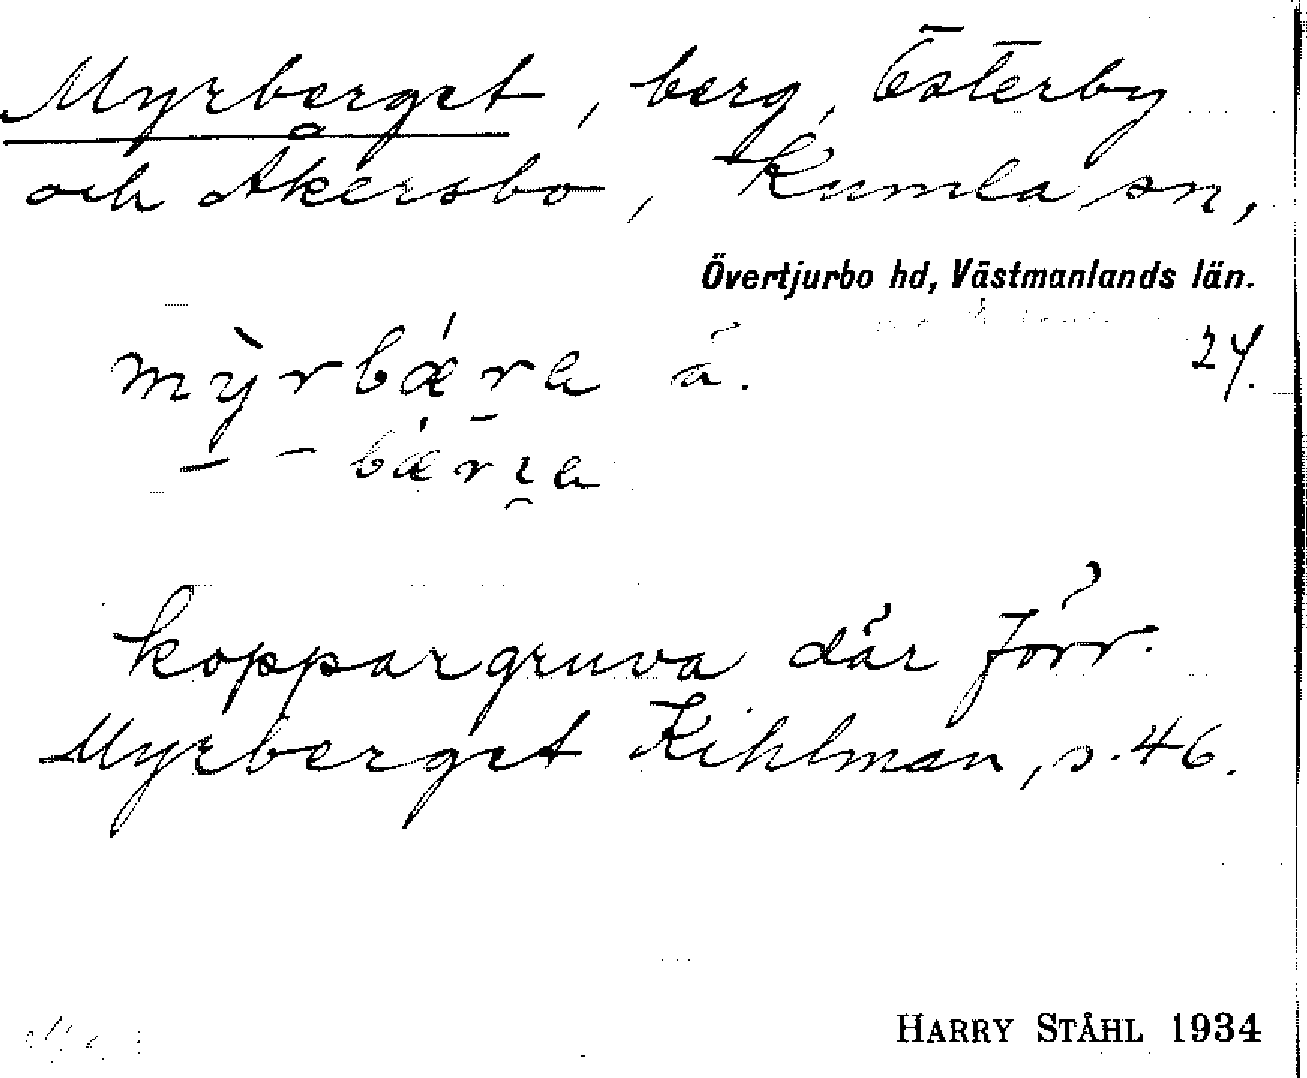 Myrberget, berg, Österby
och Åkersbo, Kumla sn,
Övertjurbo hd, Västmanlands län.
mỳrbǽra å. 24.
– – bǽrɪa
koppargruva där förr.
Myrberget Kihlman, s. 46.
HARRY STÅHL 1934